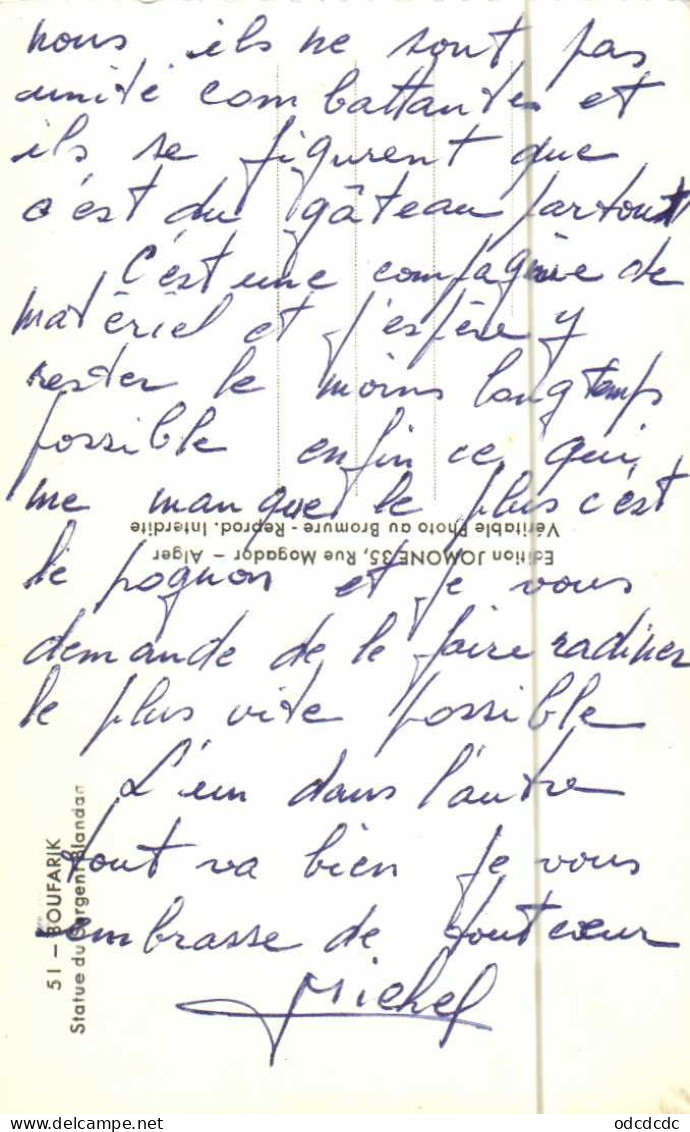 nous ils ne sont pas
unité combattantes et
ils se figurent que
c'est du gâteau partout
C'est une compagnie de
matériel et j'espère y
rester le moins longtemps
possible enfin ce qui
me manque le plus c'est
le pognon et je vous
demande de le faire radiner
le plus vite possible
L'un dans l'autre
tout va bien je vous
embrasse de tout cœur
Michel
Edition JOMONE 35, Rue Mogador - Alger
Véritable Photo au Bromure - Reprod. Interdite
51 - BOUFARIK
Statue du Sergent Blandan
odcdcdc